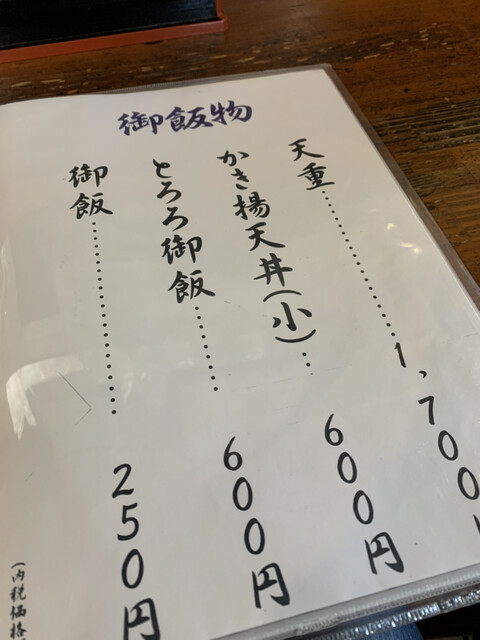 御飯物
天重 1,700
かき揚天丼(小) 600円
とろろ御飯 600円
御飯 250円
(内税価格